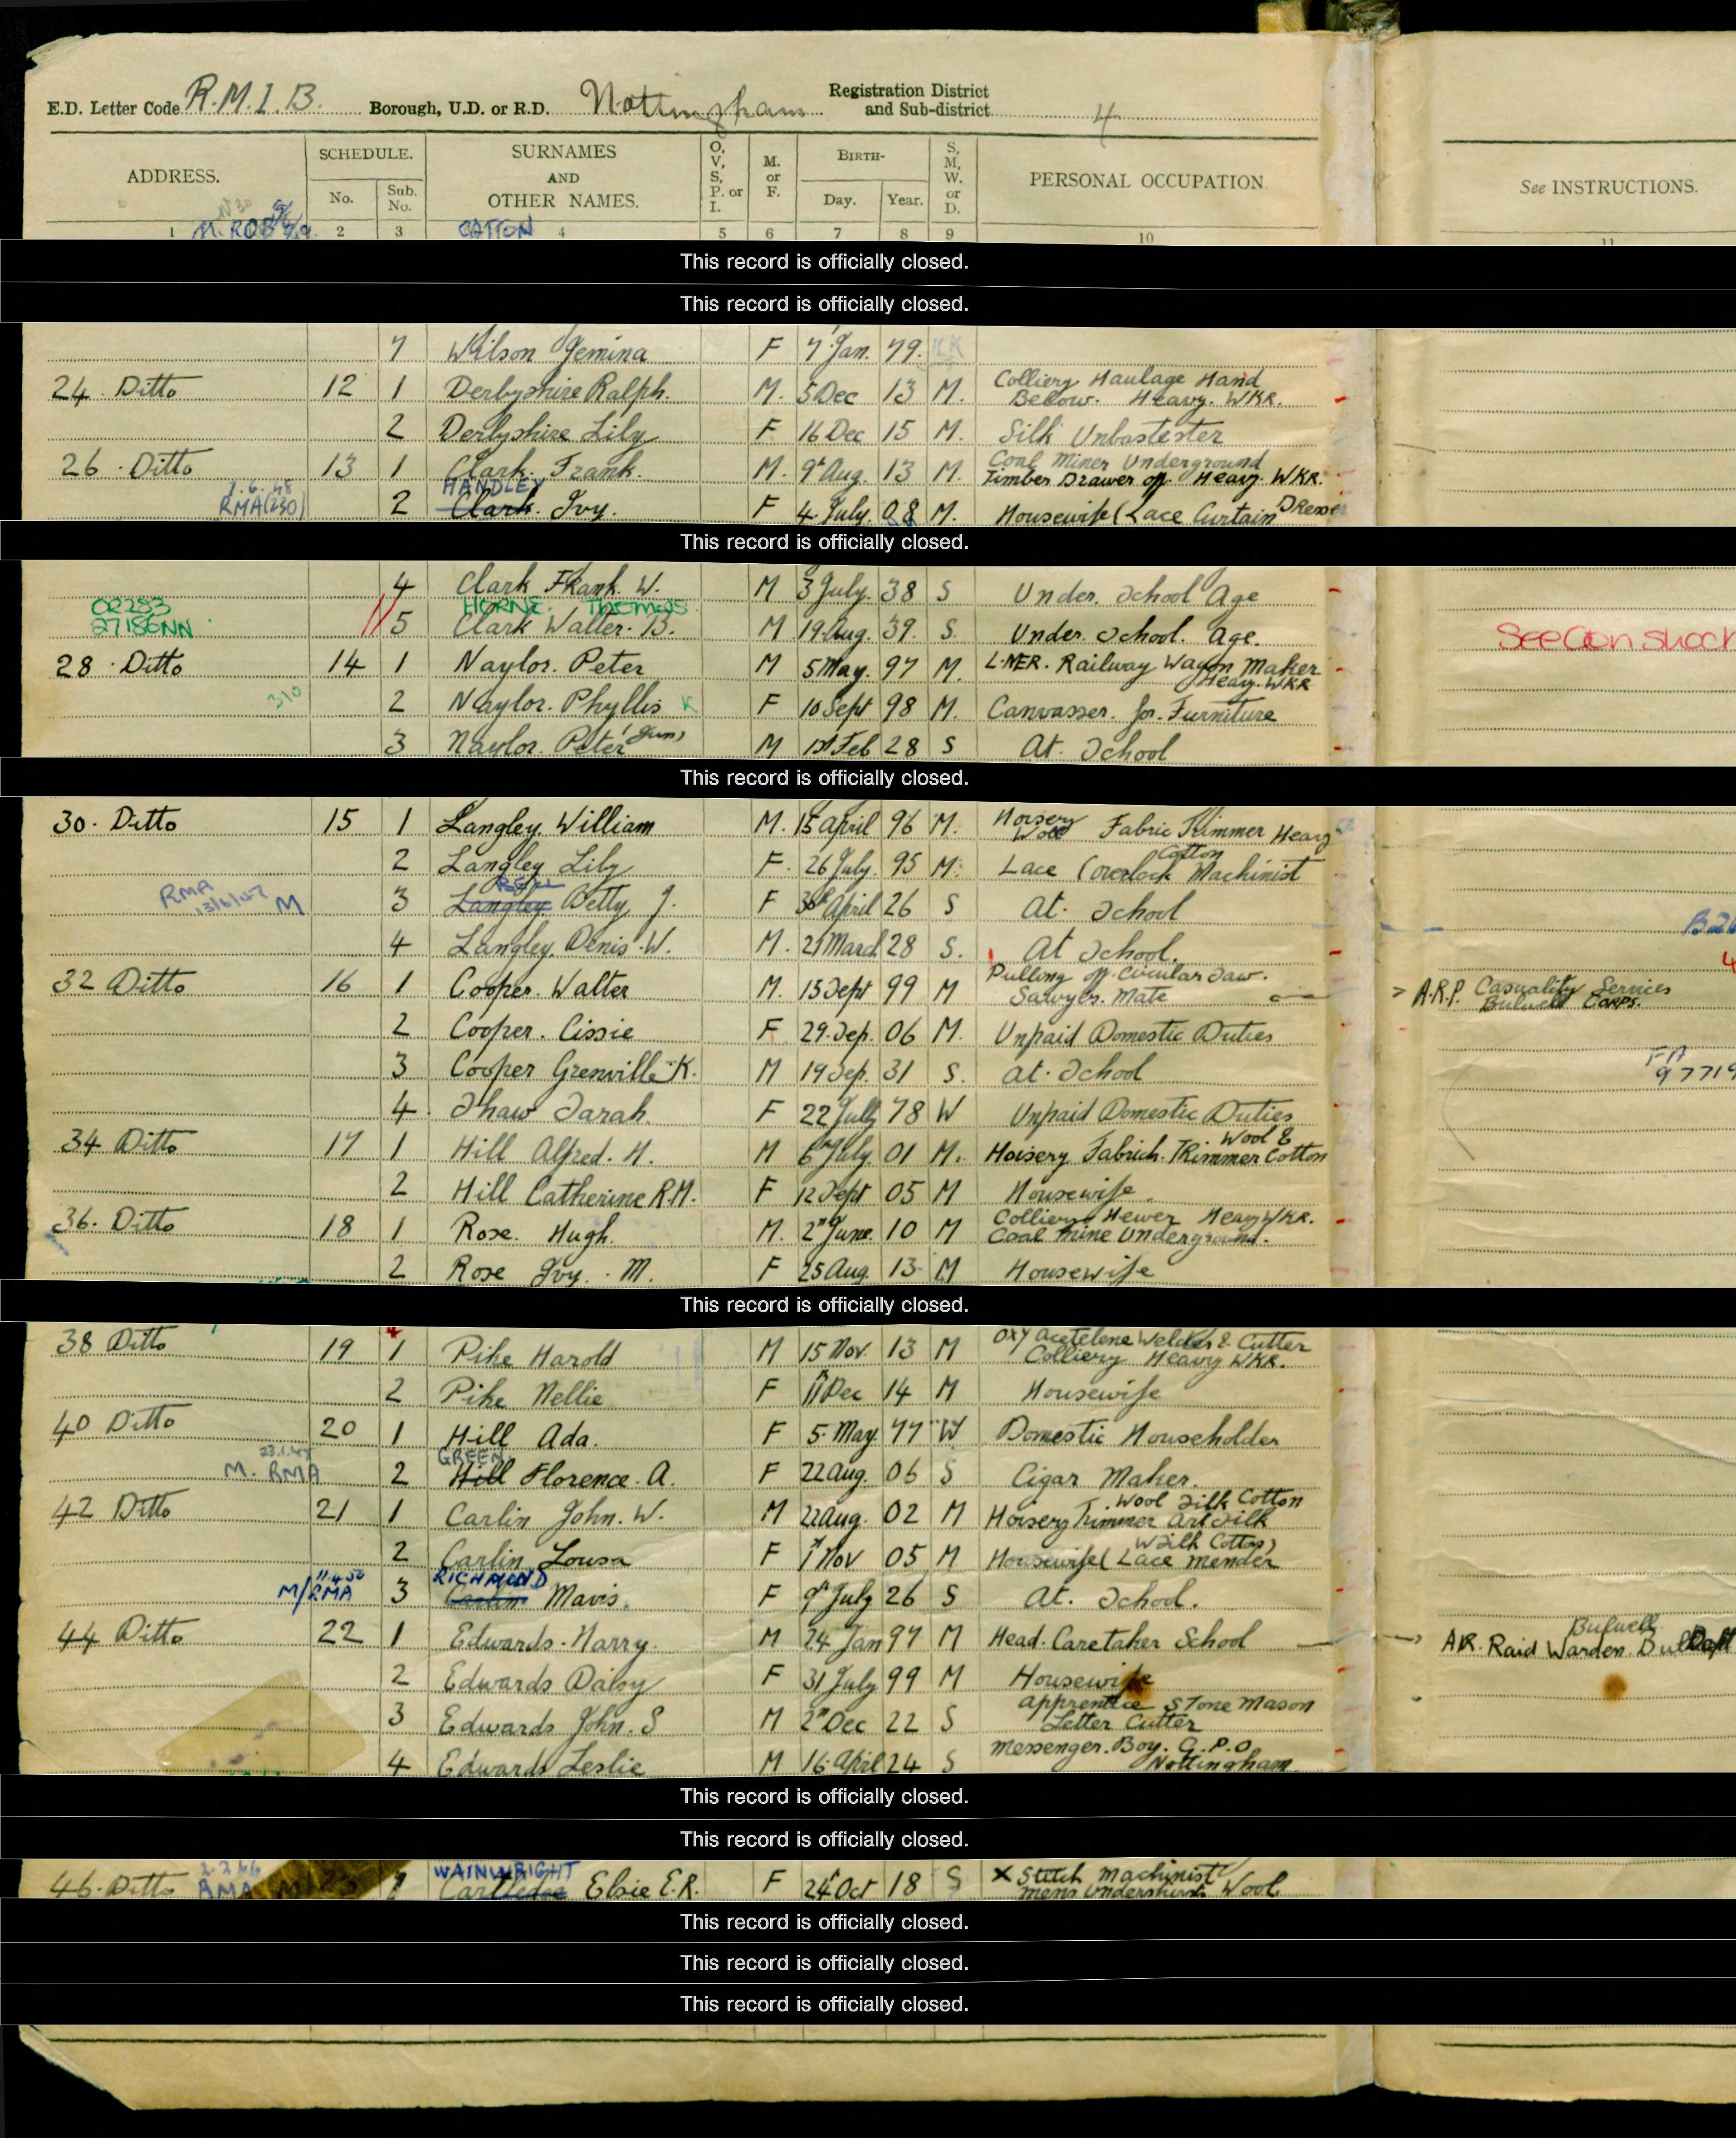 E.D. Letter Code R.M.I.B. Borough, U.D. or R.D. Nottingham Registration District and Sub-district 4
ADDRESS. SCHEDULE. No. Sub. No. SURNAMES AND OTHER NAMES. O, V, S, P. or I. M. or F. BIRTH- Day. Year. S, M, W. or D. PERSONAL OCCUPATION See INSTRUCTIONS.
1 2 3 CATTON 4 5 6 7 8 9 10 11
This record is officially closed.
This record is officially closed.
7 Wilson Jemina F 7 Jan. 79.
24 Ditto 12 1 Derbyshire Ralph. M. 5 Dec 13 M. Colliery Haulage Hand Below. Heavy. WKR.
2 Derbyshire Lily F 16 Dec 15 M. Silk
26 Ditto 13 1 Clark. Frank. M. 9 Aug. 13 M. Coal Miner Underground Timber Drawer off Heavy. WKR.
7.6.48 RMA(230) HANDLEY
2 Clark. Ivy. F 4 July. 08 M. Housewife (Lace Curtain Dresser
This record is officially closed.
4 Clark Frank W. M 3 July. 38 S Under School Age
HORNE. THOMAS.
27186NN 5 Clark Walter. B. M 19 Aug. 39. S. Under School. Age. See Con Shock
28 Ditto 14 1 Naylor. Peter M 5 May. 97 M. L.N.E.R. Railway Wagon Maker Heavy. WKR
310 2 Naylor. Phyllis K F 10 Sept 98 M. Canvasser. for. Furniture
3 Naylor. Peter (Jun) M 1st Feb 28 S At. School
This record is officially closed.
30. Ditto 15 1 Langley. William M. 15 April 96 M. Hoisery Wool Fabric Trimmer Heavy
2 Langley Lily F. 26 July. 95 M. Lace (overlock Cotton Machinist
RMA M 3 Langley Betty J. F 30th April 26 S At. School
4 Langley. Denis. W. M. 21 March 28 S. At School.
32 Ditto 16 1 Cooper. Walter M. 15 Sept 99 M Pulling off Circular Saw. Sawyers. Mate A.R.P. Casuality Services Bulwell Corps.
2 Cooper. Cissie F 29. Sep. 06 M. Unpaid Domestic Duties
3 Cooper Grenville. K. M 19 Sep. 31 S. at. School
4 Shaw Sarah. F 22 July 78 W Unpaid Domestic Duties
34 Ditto 17 1 Hill Alfred. H. M 6 July. 01 M. Hoisery Fabrich. Trimmer Wool & Cotton
2 Hill Catherine R.M. F 12 Sept 05 M Housewife.
36. Ditto 18 1 Rose. Hugh. M. 2nd June. 10 M Colliery Hewer Heavy WKR. Coal Mine Underground.
2 Rose Ivy. M. F 25 Aug. 13 M Housewife
This record is officially closed.
38 Ditto 19 1 Pike Harold M 15 Nov. 13 M Oxy Acetelene Welder & Cutter Colliery Heavy WKR.
2 Pike Nellie F 11 Dec 14 M Housewife
40 Ditto 20 1 Hill Ada. F 5. May. 77 W Domestic Householder
M. RMA GREEN
2 Hill Florence. A. F 22 Aug. 06 S Cigar Maker.
42 Ditto 21 1 Carlin John. W. M 22 Aug. 02 M Hoisery Trimmer Wool Silk Cotton Art Silk
2 Carlin Lousa F 1 Nov 05 M Housewife (Lace Mender Silk Cotton)
11.4.50 M/RMA RICHMOND
3 Carlin Mavis. F 9th July 26 S At. School.
44 Ditto 22 1 Edwards. Harry. M 24 Jan 97 M Head. Caretaker School Air. Raid Warden. Bulwell
2 Edwards Daisy F 31 July 99 M Housewife
3 Edwards John. S M 2nd Dec 22 S Apprentice Stone Mason Letter Cutter
4 Edwards Leslie M 16 April 24 S Messenger. Boy. G.P.O. Nottingham
This record is officially closed.
This record is officially closed.
46. Ditto RMA M 23 1 WAINWRIGHT Elsie E.R. F 24 Oct 18 S X Stitch Machinist Mens Undershirts Wool
This record is officially closed.
This record is officially closed.
This record is officially closed.